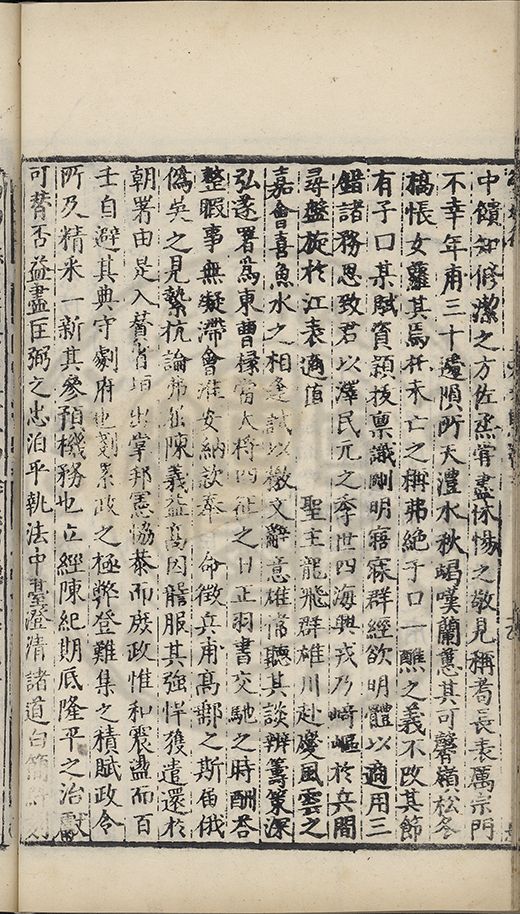 中饋知修潔之方佐烝嘗盡怵惕之敬見稱耆長表厲宗門
不幸年甫三十遽隕所天澧水秋竭嘆蘭蕙其可馨嶺松冬
槁悵女蘿其焉托未亡之稱弗絕于口一醮之義不改其節
有子口某賦資穎拔禀識剛明寤寐群經欲明體以適用三
錯諸務思致君以澤民元之季世四海興戎乃崎嶇於兵間
尋盤旋於江表適值　聖主龍飛群雄川赴慶風雲之
嘉會喜魚水之相逢試以檄文辭意雄偉聽其談辨籌策深
弘遂署為東曹掾當大將四征之日正羽書交馳之時酬荅
整暇事無凝滯會淮安納款奉　命徵兵甫髙郵之斯届俄
僞吳之見縶抗論弗䘐陳義益髙因讋服其強悍獲遣還於
朝署由是入贊省垣出掌邦憲協恭而庶政惟和震盪而百
壬自避其典守劇府也剗累政之極弊登難集之積賦政令
所及精采一新其參預機務也立經陳紀期底隆平之治獻
可替否益盡匡弼之忠洎乎執法中臺澄清諸道白簡